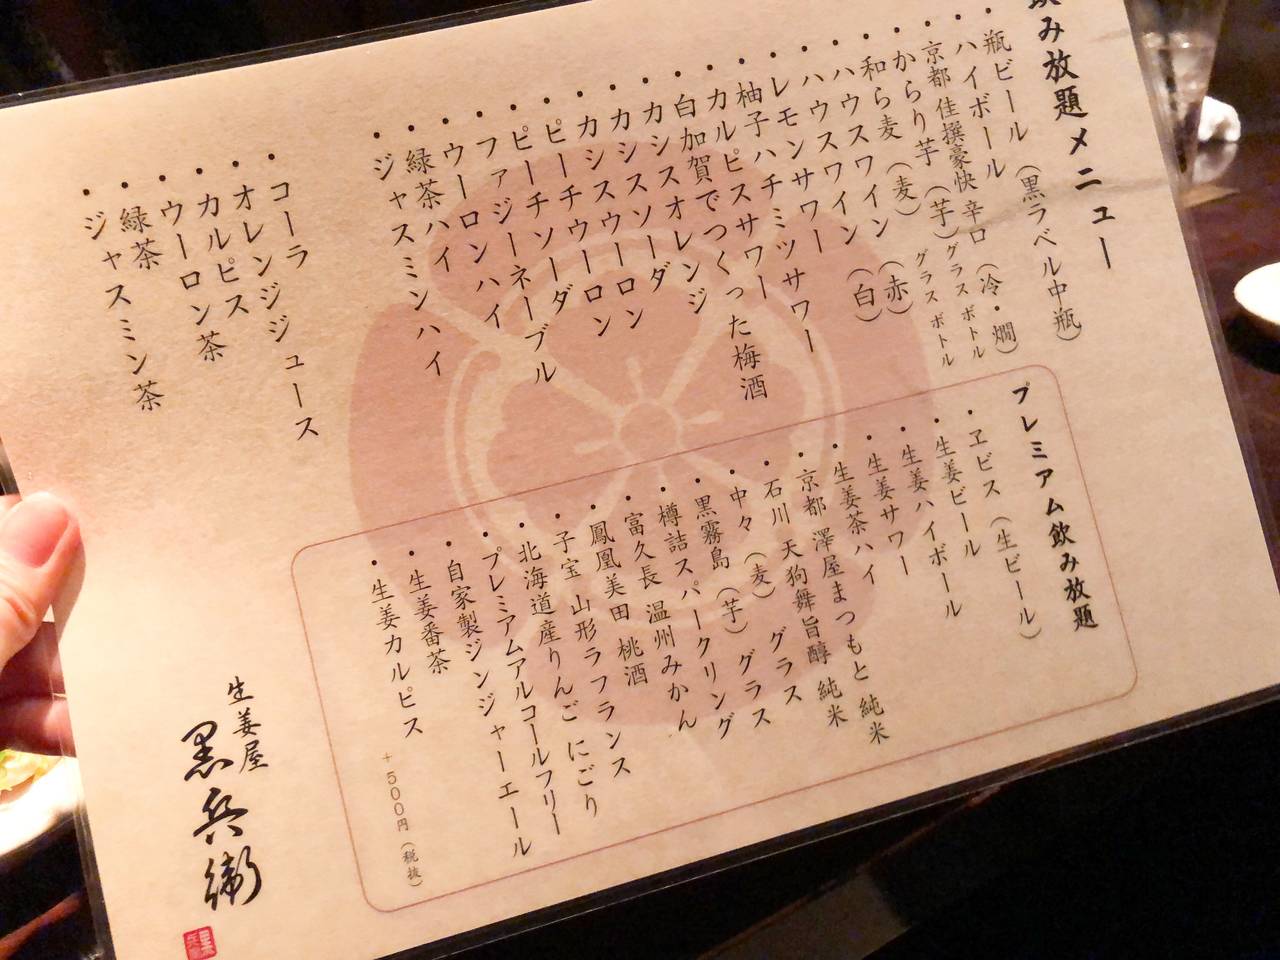 飲み放題メニュー
・瓶ビール（黒ラベル中瓶）
・ハイボール
・京都 佳撰豪快 辛口（冷・燗）
・からり芋（芋）グラス ボトル
・和ら麦（麦）グラス ボトル
・ハウスワイン（赤）
・ハウスワイン（白）
・レモンサワー
・柚子ハチミツサワー
・カルピスサワー
・白加賀でつくった梅酒
・カシスオレンジ
・カシスソーダ
・カシスウーロン
・ピーチウーロン
・ピーチソーダ
・ファジーネーブル
・ウーロンハイ
・緑茶ハイ
・ジャスミンハイ
・コーラ
・オレンジジュース
・カルピス
・ウーロン茶
・緑茶
・ジャスミン茶
プレミアム飲み放題
・ヱビス（生ビール）
・生姜ビール
・生姜ハイボール
・生姜サワー
・生姜茶ハイ
・京都 澤屋まつもと 純米
・石川 天狗舞旨醇 純米
・中々（麦） グラス
・黒霧島（芋） グラス
・樽詰スパークリング
・富久長 温州みかん
・鳳凰美田 桃酒
・子宝 山形ラフランス
・北海道産りんご にごり
・プレミアムアルコールフリー
・自家製ジンジャーエール
・生姜番茶
・生姜カルピス
+500円（税抜）
生姜屋
黒兵衛